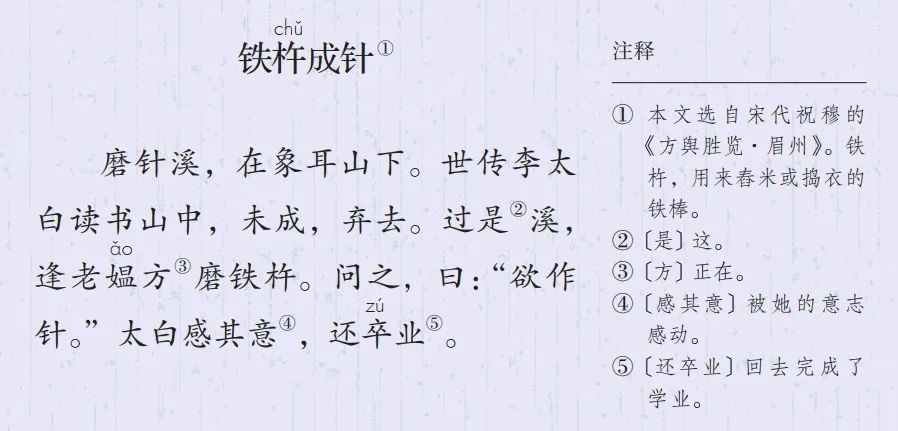 chǔ
铁杵成针①
磨针溪，在象耳山下。世传李太
白读书山中，未成，弃去。过是②溪，
ǎo
逢老媪方③磨铁杵。问之，曰：“欲作
zú
针。”太白感其意④，还卒业⑤。
注释
① 本文选自宋代祝穆的
《方舆胜览·眉州》。铁
杵，用来舂米或捣衣的
铁棒。
②〔是〕这。
③〔方〕正在。
④〔感其意〕被她的意志
感动。
⑤〔还卒业〕回去完成了
学业。